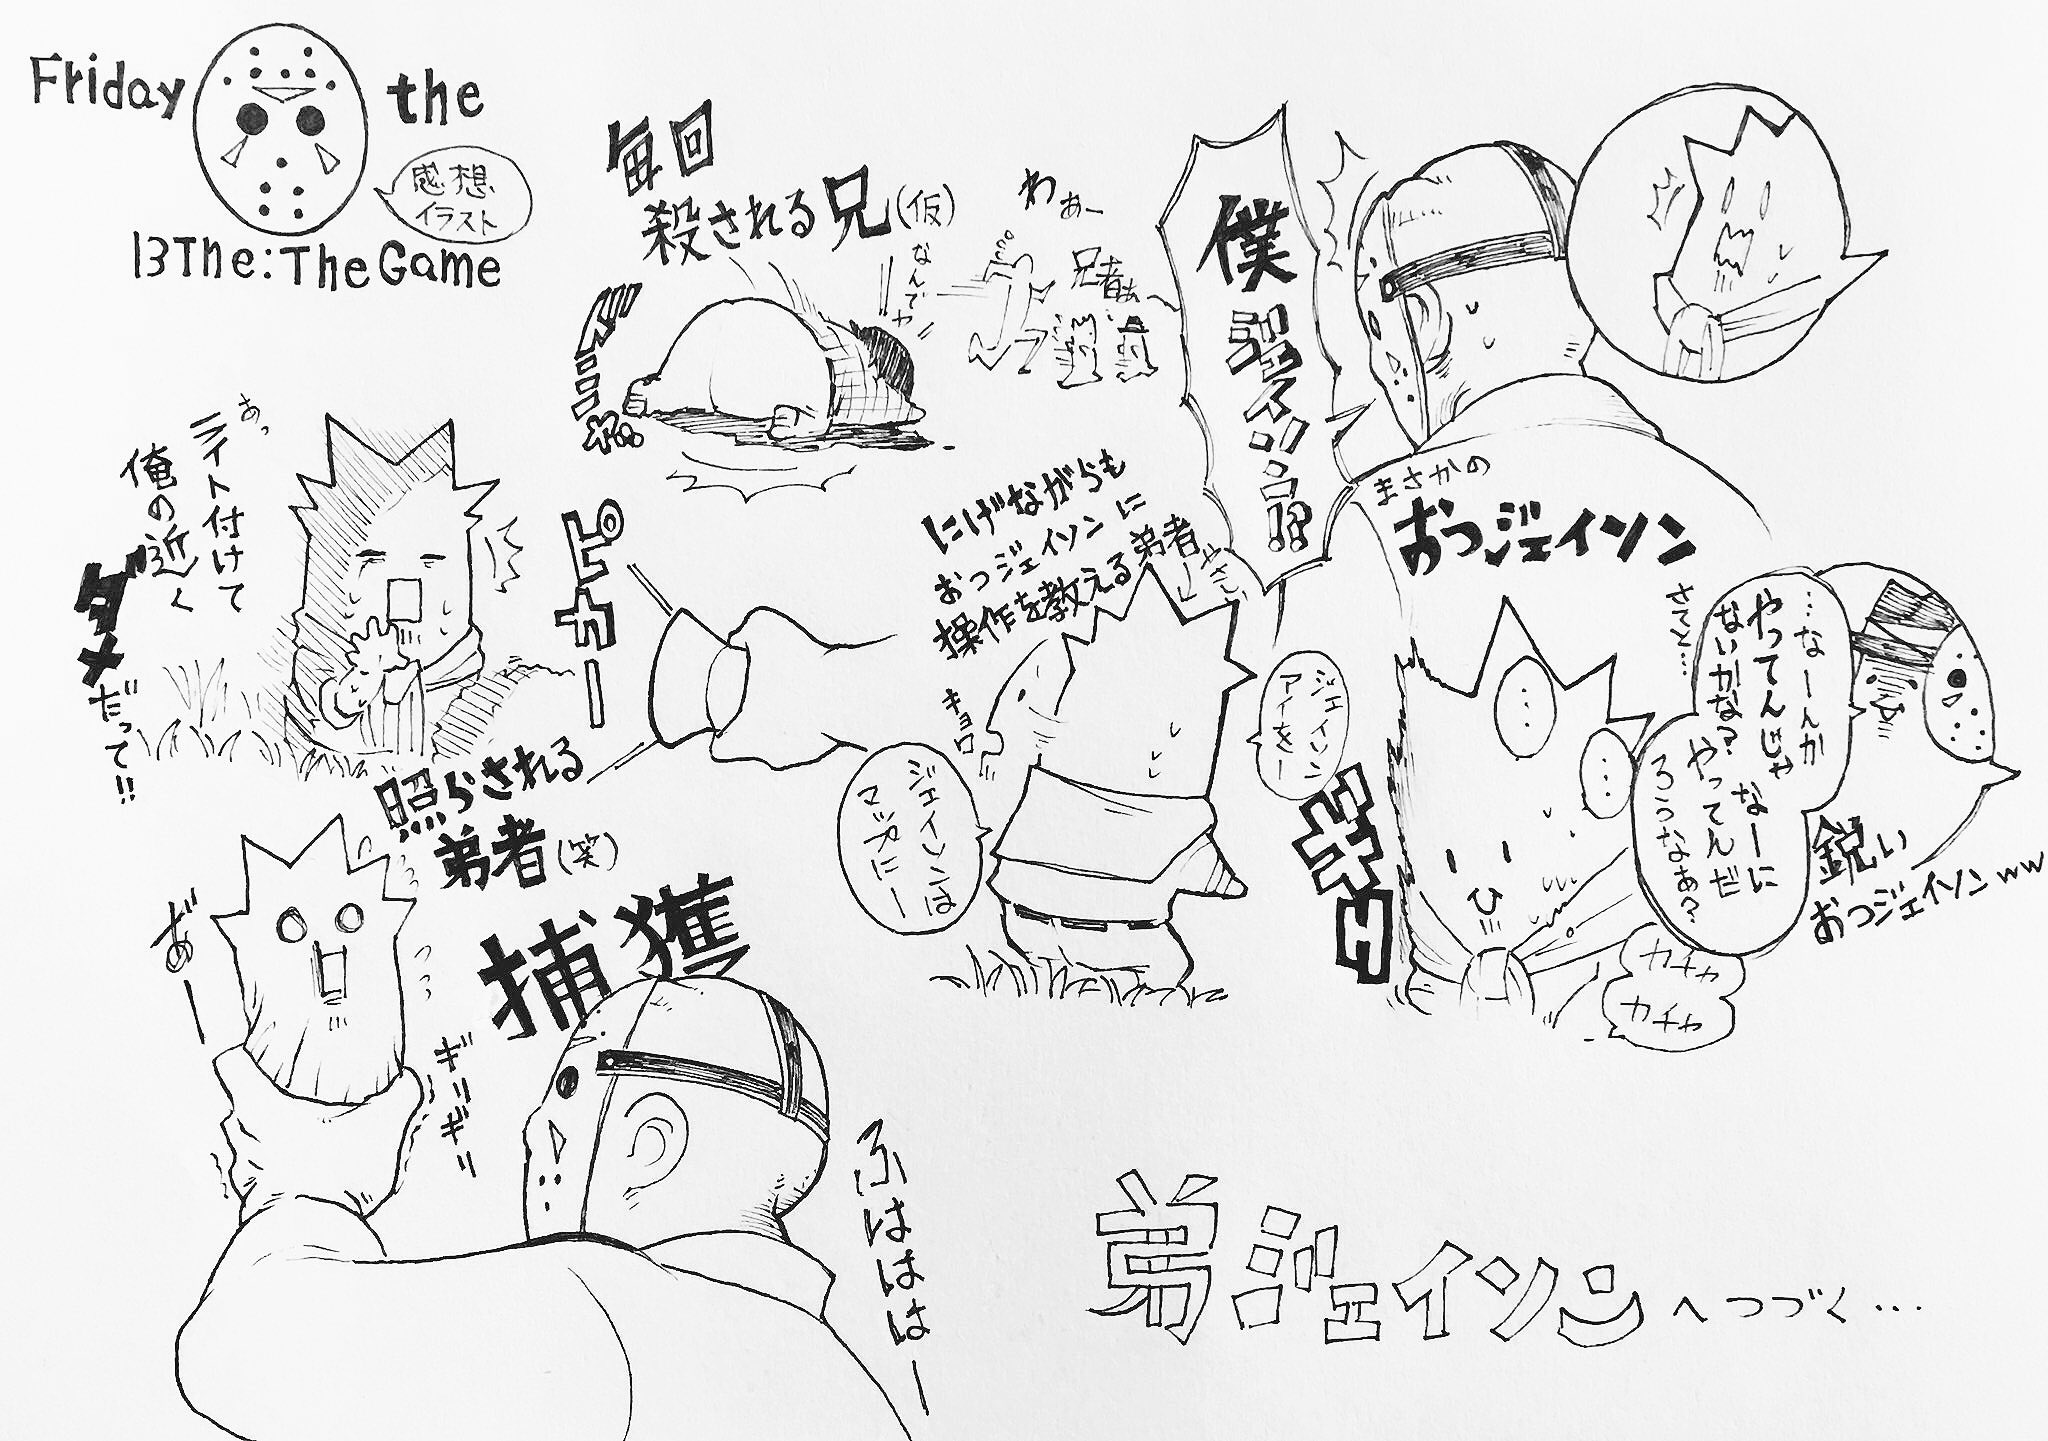 Friday
the
13The:TheGame
感想
イラスト
毎回
殺される兄(仮)
ドミニャア
なんでや
わぁー
兄者ぁ〜
僕ジェイソン!?
まさかの
おつジェイソン
あっ
ライト付けて
俺の近く
ダメだって!!
ピカー
照らされる
弟者(笑)
にげながらも
おつジェイソンに
操作を教える弟者
やさしい
キョロ
ジェイソンは
マップにー
ジェイソン
アイをー
さてと…
…なーんか
やってんじゃ
ないかな?
なーに
やってんだ
ろうなぁ?
鋭い
おつジェイソンww
…
…
ひ
カチャ
カチャ
あ゛ー
捕獲
ギリギリ
ふはははー
弟ジェイソンへつづく…